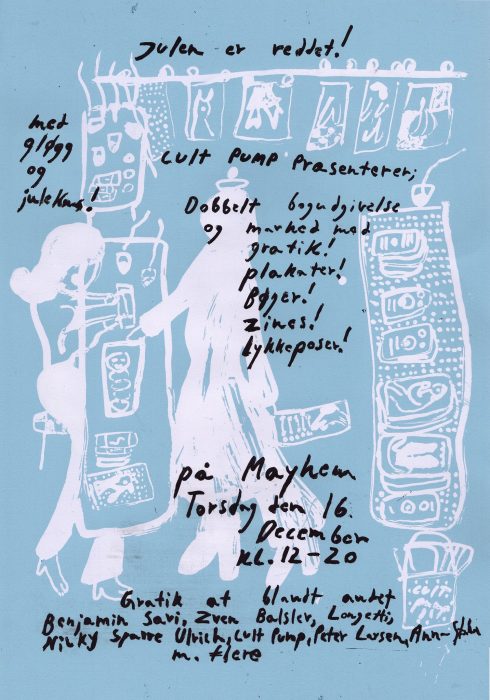 Julen er reddet!
med
gløgg
og
julekns!
Cult Pump Præsenterer;
Dobbelt bogudgivelse
og marked med
grafik!
plakater!
Bøger!
Zines!
Lykkeposer!
på Mayhem
Torsdag den 16.
December
kl. 12-20
Grafik af blandt andet
Benjamin Savi, Zven Balslev, Longetti,
Nicky Sparre Ulrich, Cult Pump, Peter Larsen, Ann-
m. flere
cult